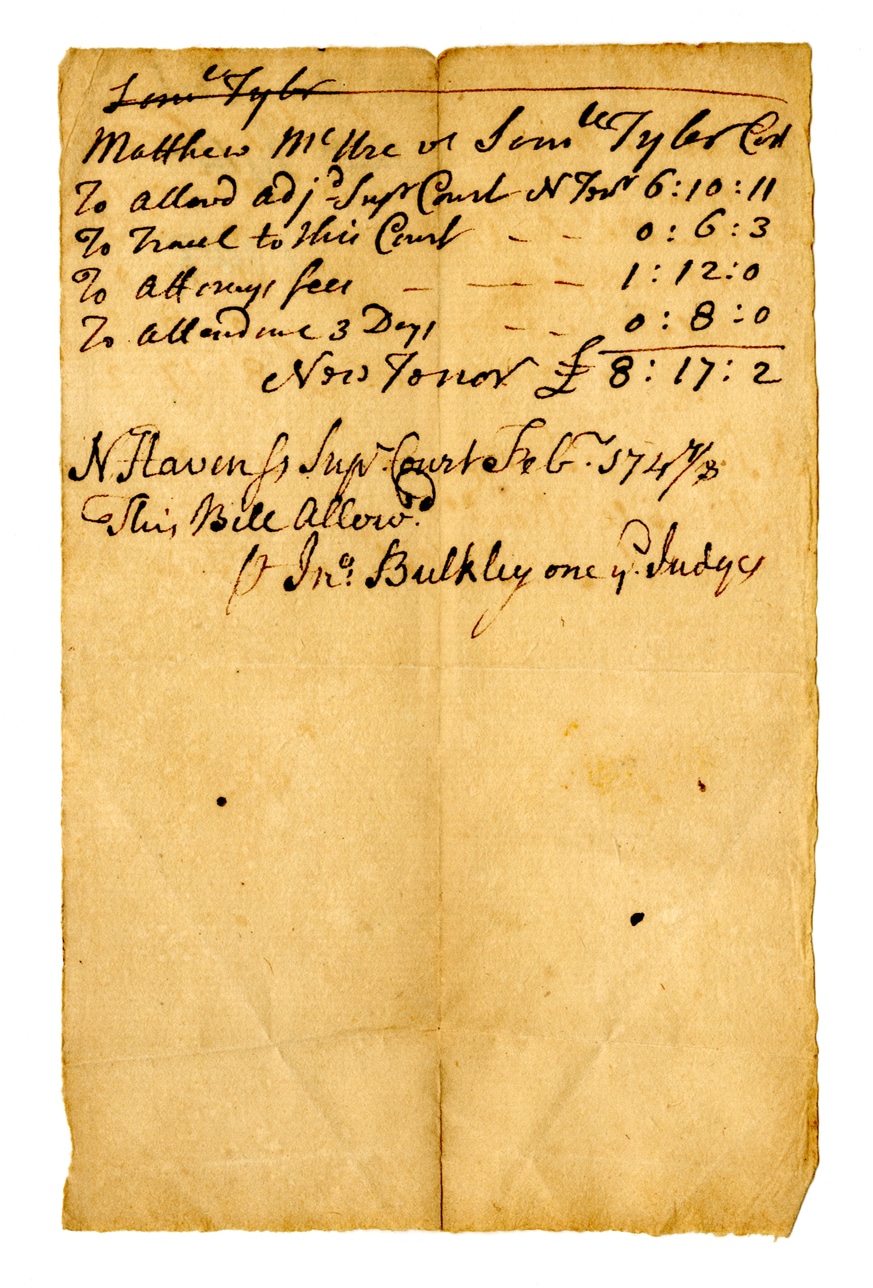 Samˡˡ Tyler
Matthew Mᶜ Ure vs Samˡˡ Tyler Cost
To allowd adjᵈ Supʳ Court N Tenʳ 6:10:11
To Travel to this Court - - 0:6:3
To Attornys fees - - - - 1:12:0
To Attendance 3 Days - - 0:8:0
New Tenor £ 8:17:2
N Haven ss Supʳ Court Febʳ 1747/8
This Bill Allowᵈ
Jnᵒ: Bulkley one yᵉ Judges